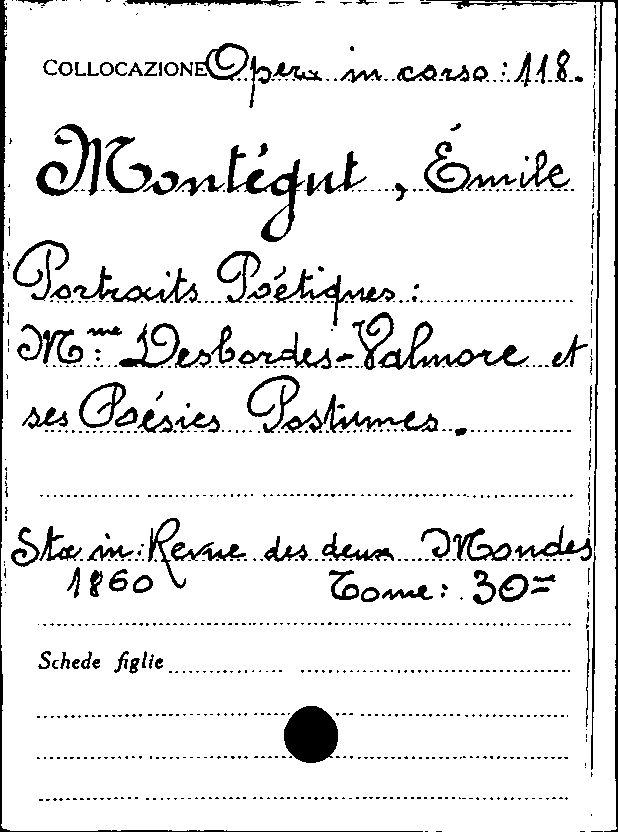 COLLOCAZIONE Opera in corso: 118.
Montégut, Émile
Portraits Poétiques:
M.me Desbordes-Valmore et
ses Poésies Postumes.
Sta in: Revue des deux Mondes
1860 Tome: 30=
Schede figlie